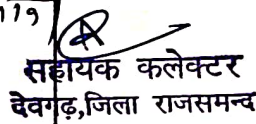 119
सहायक कलेक्टर
देवगढ़,जिला राजसमन्द